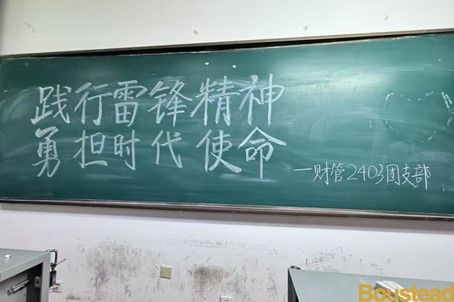 践行雷锋精神
勇担时代使命
—财管2403团支部
Boustead